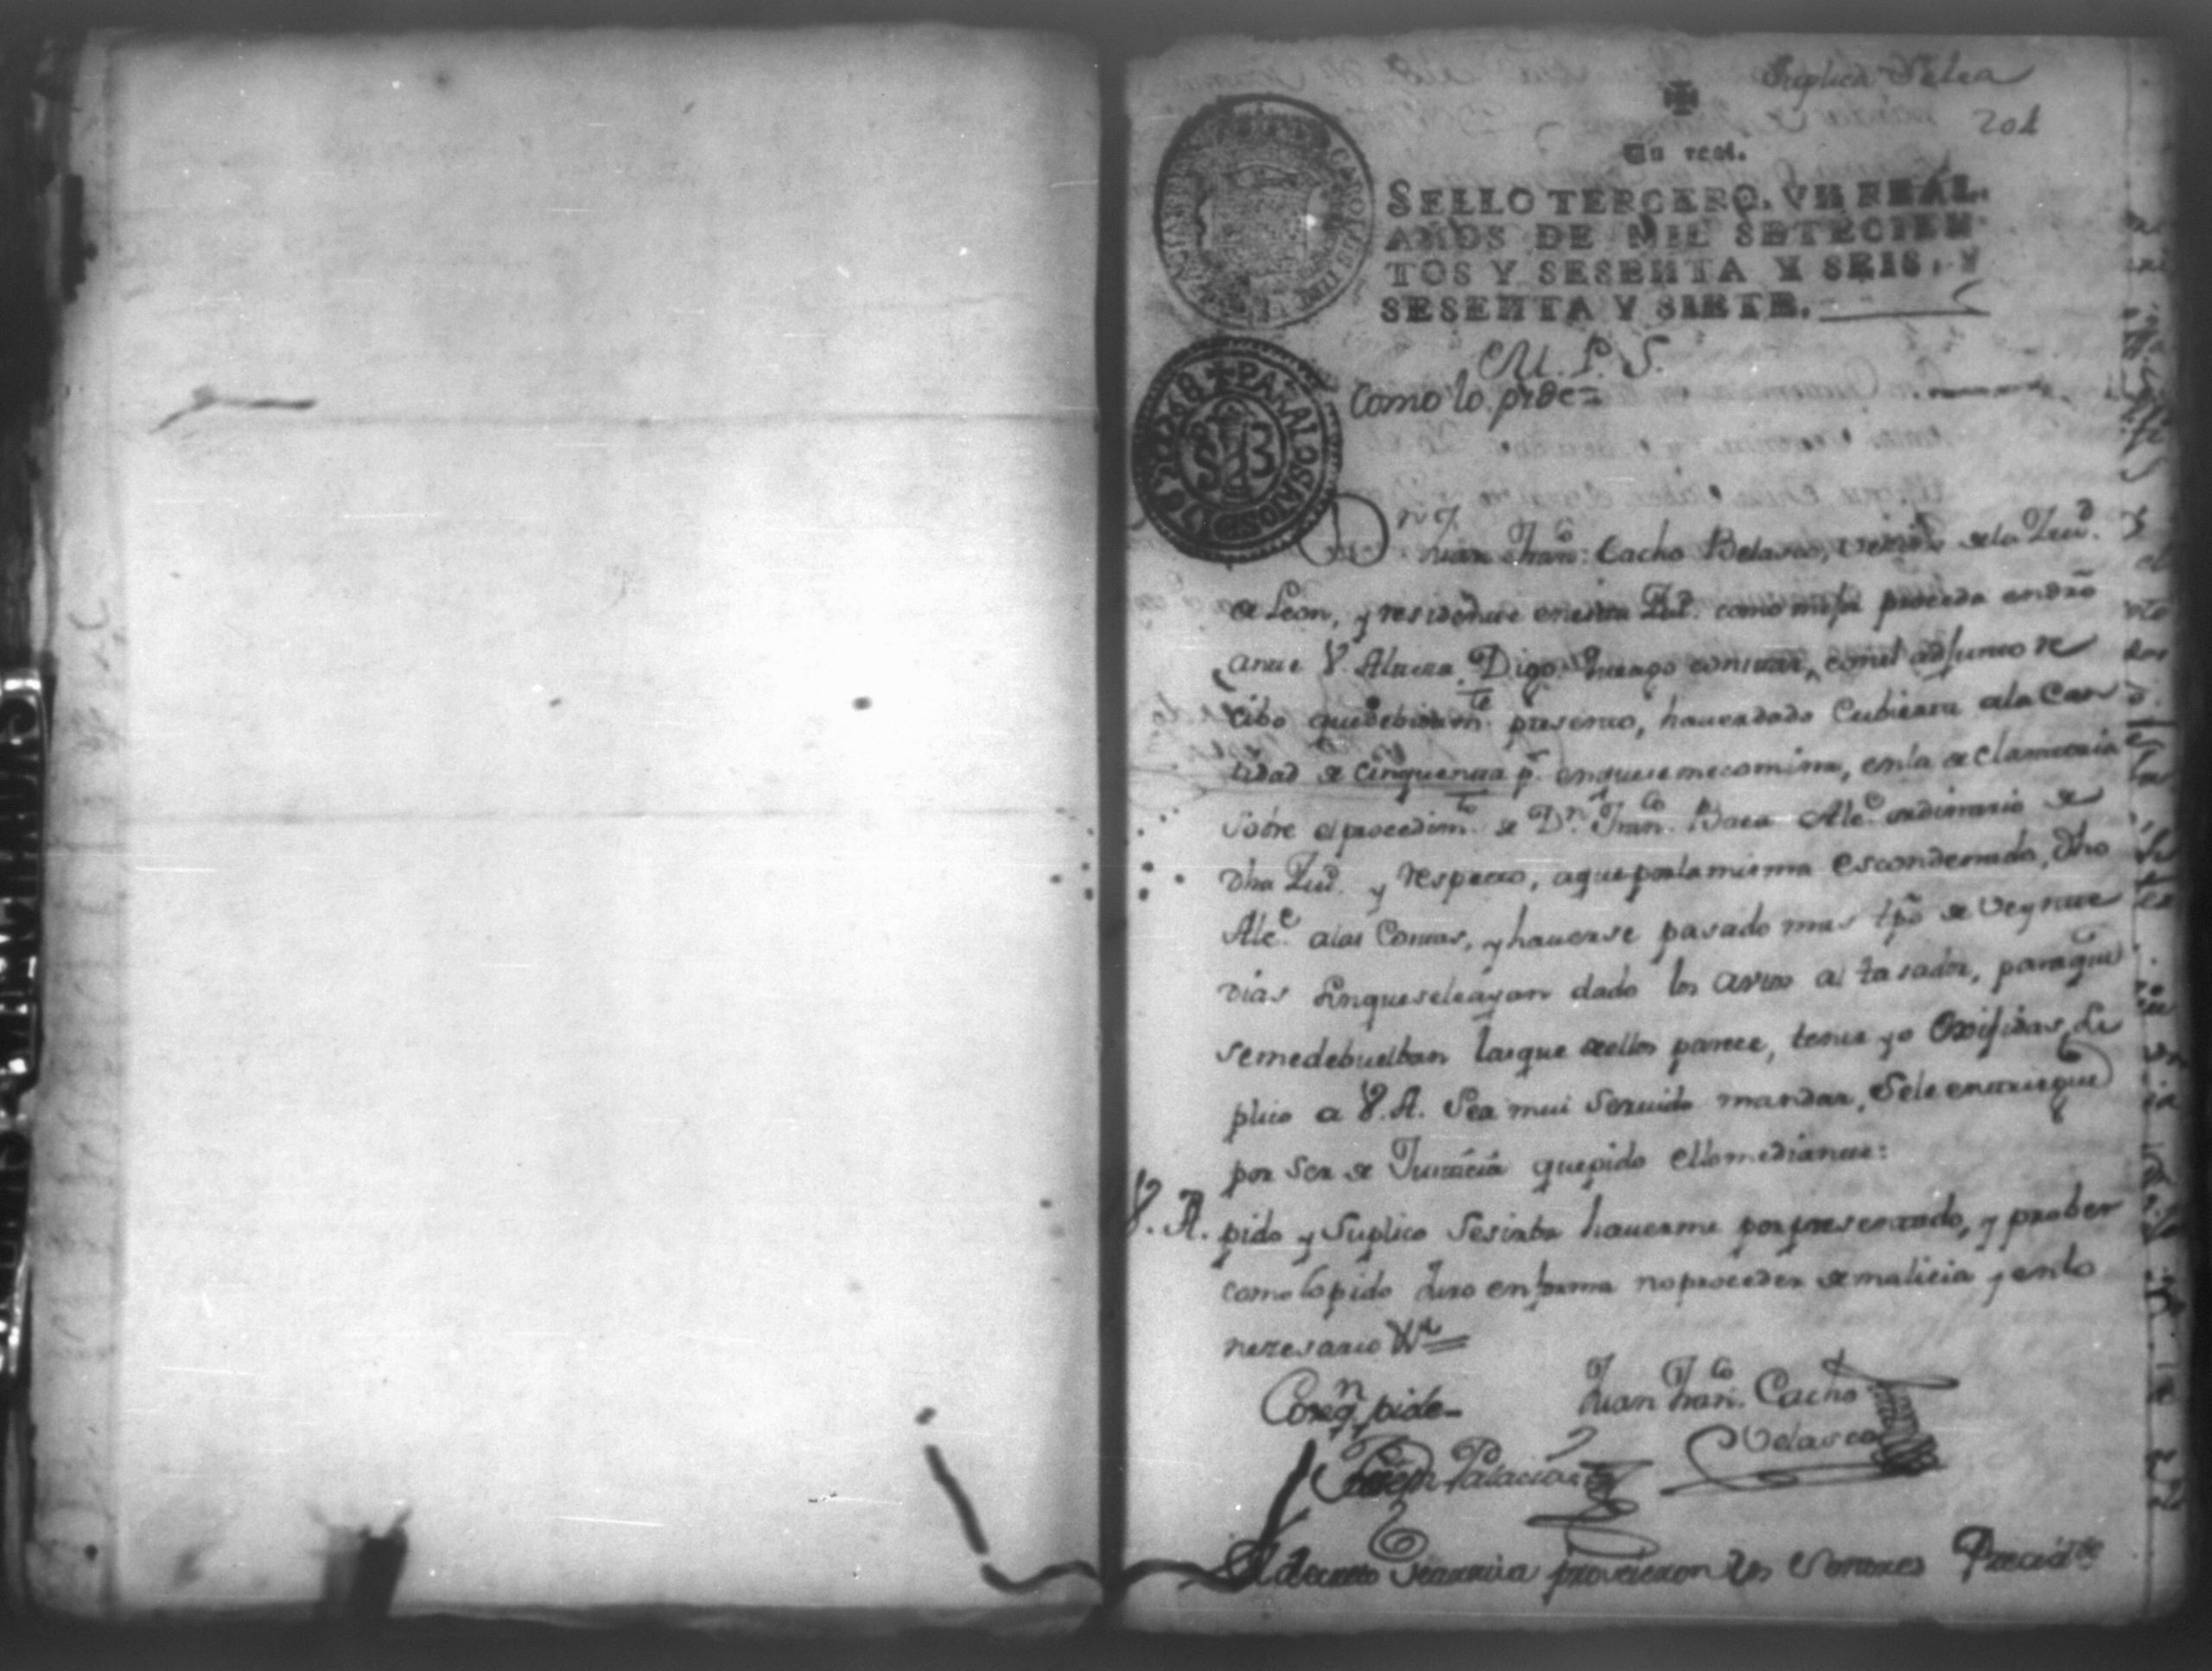 Suplica Selea
201
Un real.
SELLO TERCERO. VN REAL.
AÑOS DE MIL SETECIEN
TOS Y SESENTA Y SEIS, Y
SESENTA Y SIETE.
CAROLUS III
M. P. S.
Como lo pide =
PARA LOS AÑOS D 1767 Y 68
Dn
Juan Franco Cacho Belasco, vezino de la Ziud.
de Leon, y residente en esta Zud. como mejor proceda en dro
ante V. Alteza, Digo. hurago constar, con el adjunto re
cibo que debidamte presento, haver dado Cubierta a la Can
tidad de cinquenta ps en que se me
sobre el procedimto de Dn Franco Baca Alce ordinario de
dha Zud. y respecto, a que por la misma es condenado, dho
Alce a las Costas, y haverse pasado mas tpo de veynte
dias sin que se le ayan dado los autos al tasador, para que
se me debuelban las que de ellos parece, tener yo Oxividas, Su
plico a V. A. Sea mui Servido mandar, Se le entrieguen
por Ser de Justicia que pido ello mediante:
V. A. pido y Suplico Se sirba haverme por presentado, y prober
como lo pido Juro en forma no proceder de malicia y en lo
nezesario Va
Coregn pide
Juan Franco Cacho
Velasco
Palacios
El decreto de arriva proveieron los Señores Precidte